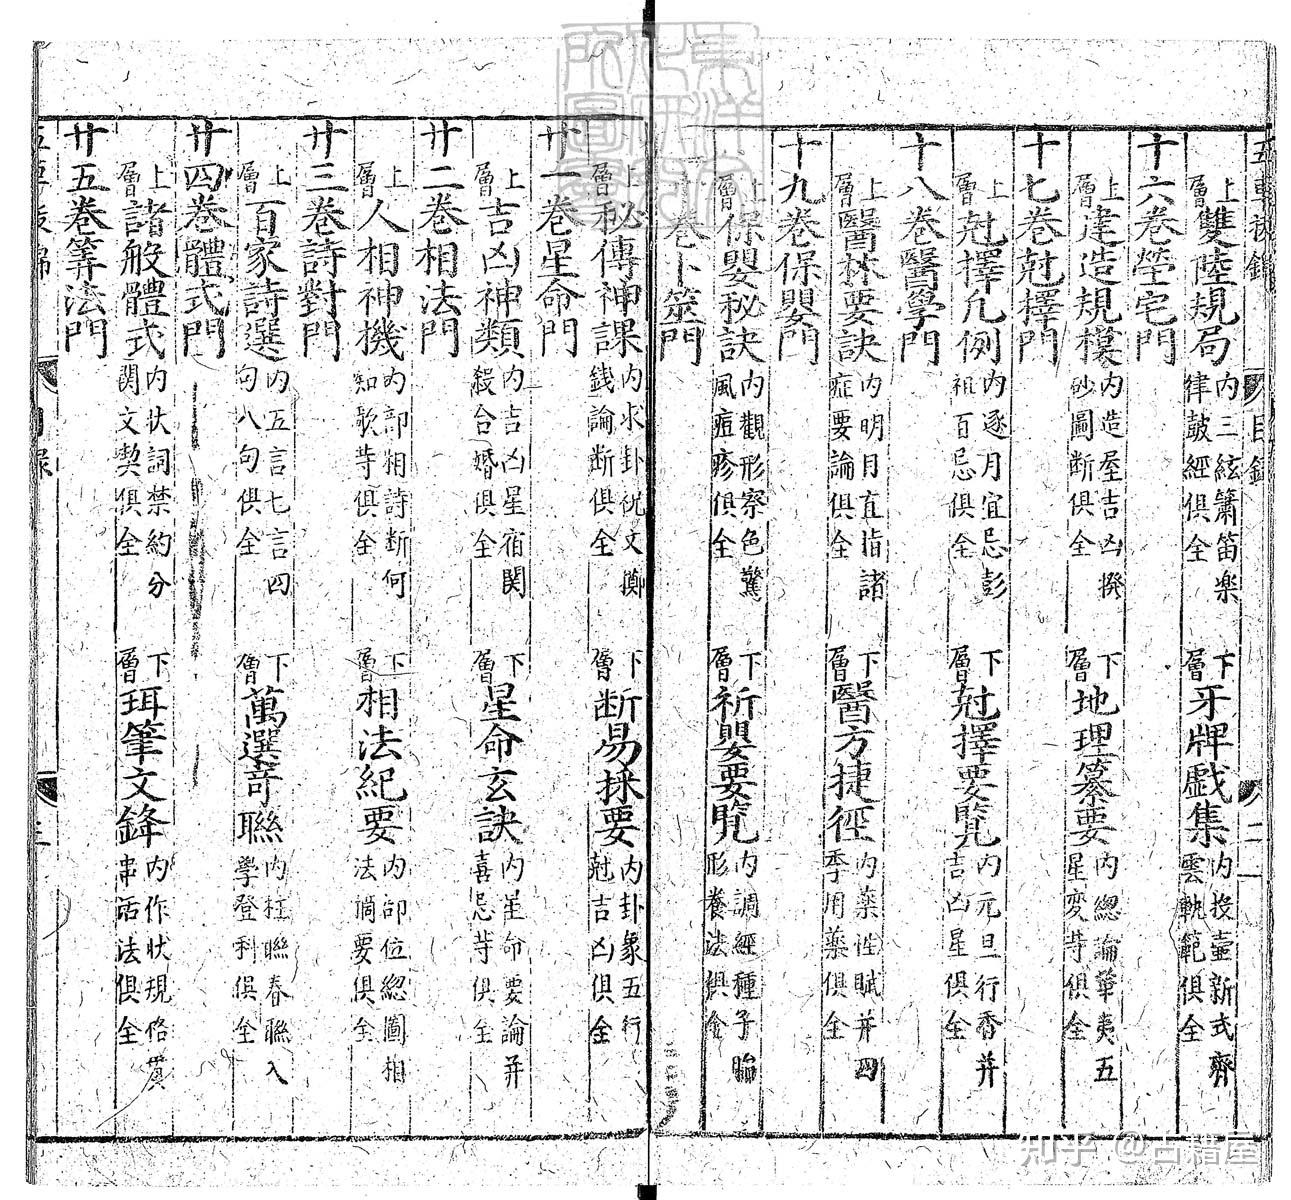 上層雙陸規局 内三絃簫笛樂律鼓經俱全 下層牙牌戲集 内投壷新式齊雲軌範俱全
十六卷塋宅門
上層違造規模 内造屋吉凶撥砂圖断俱全 下層地理纂要 内緫論華夷五星变等俱全
十七卷尅擇門
上層尅擇凡例 内逐月宜忌彭祖百忌俱全 下層尅擇要覧 内元旦行香并吉凶星俱全
十八卷醫學門
上層醫林要訣 内明月直指諸症要論俱全 下層醫方捷徑 内藥性賦并四季用藥俱全
十九卷保嬰門
上層保嬰秘訣 内觀形察色驚風痘疹俱全 下層祈嬰要覧 内調經種子胎形養法俱全
卷卜筮門
上層秘傳神課 内求卦祝文擲錢論断俱全 下層断易採要 内卦象五行尅吉凶俱全
廿一卷星命門
上層吉凶神類 内吉凶星宿関殺合婚俱全 下層星命玄訣 内星命要論并喜忌等俱全
廿二卷相法門
上層人相神機 内部相詩断何知歌等俱全 下層相法紀要 内部位緫圖相法摘要俱全
廿三卷詩對門
上層百家詩選 内五言七言四句八句俱全 下層萬選奇聯 内柱聯春聯入學登科俱全
廿四卷體式門
上層諸般體式 内状詞禁約分関文契俱全 下層珥筆文鋒 内作状規格貫串活法俱全
廿五卷筭法門
知乎 @古籍屋